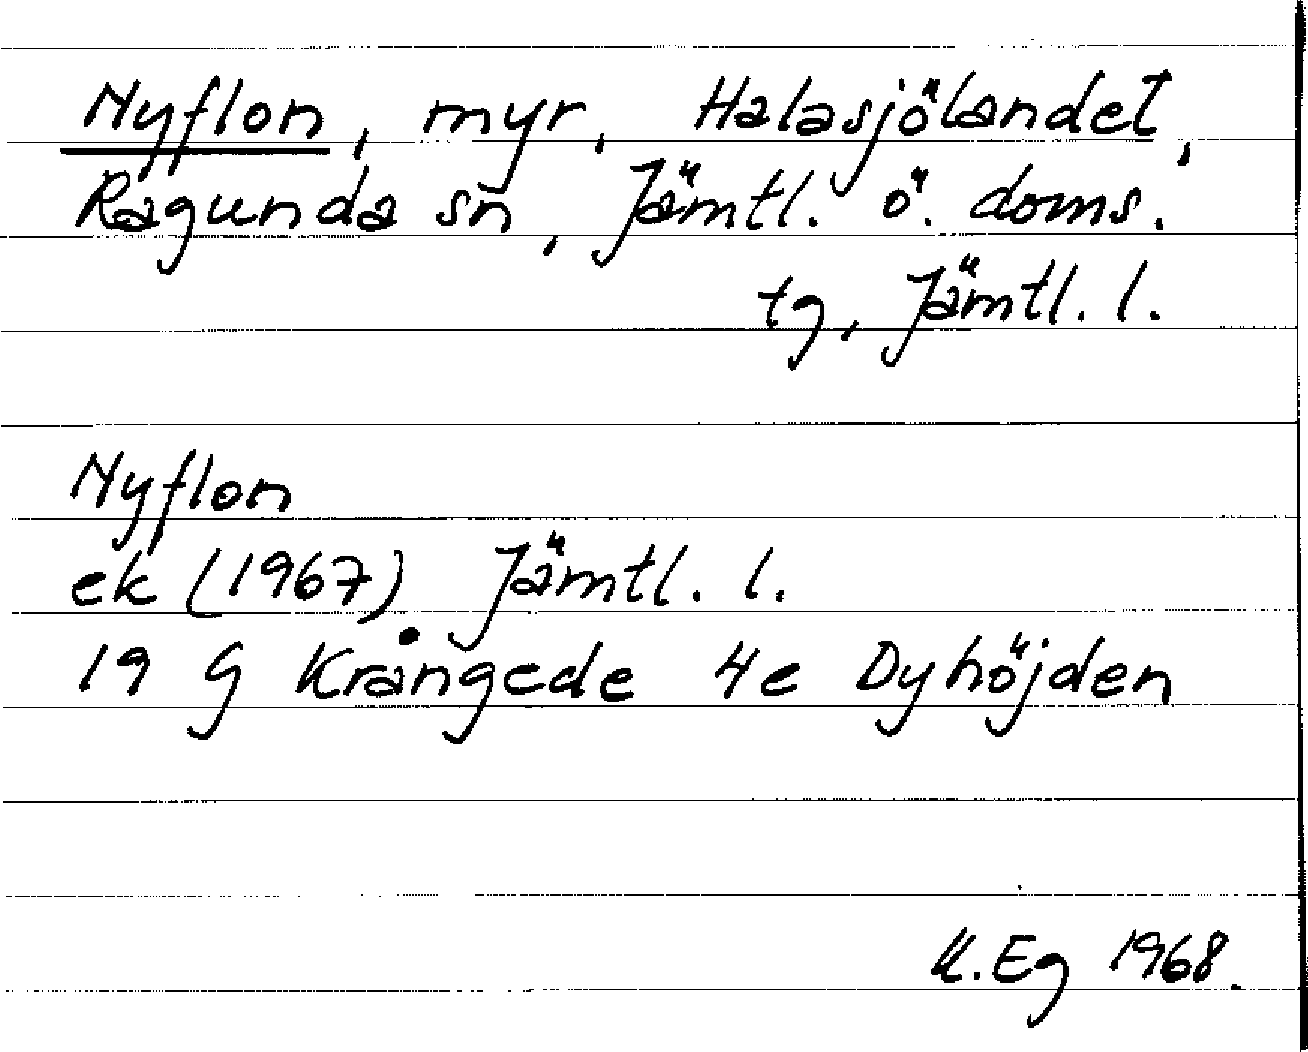 Nyflon, myr, Halasjölandet,
Ragunda sn, Jämtl. ö. doms.
tg, Jämtl. l.
Nyflon
ek (1967) Jämtl. l.
19 G Krångede 4e Dyhöjden
K. Eg 1968.